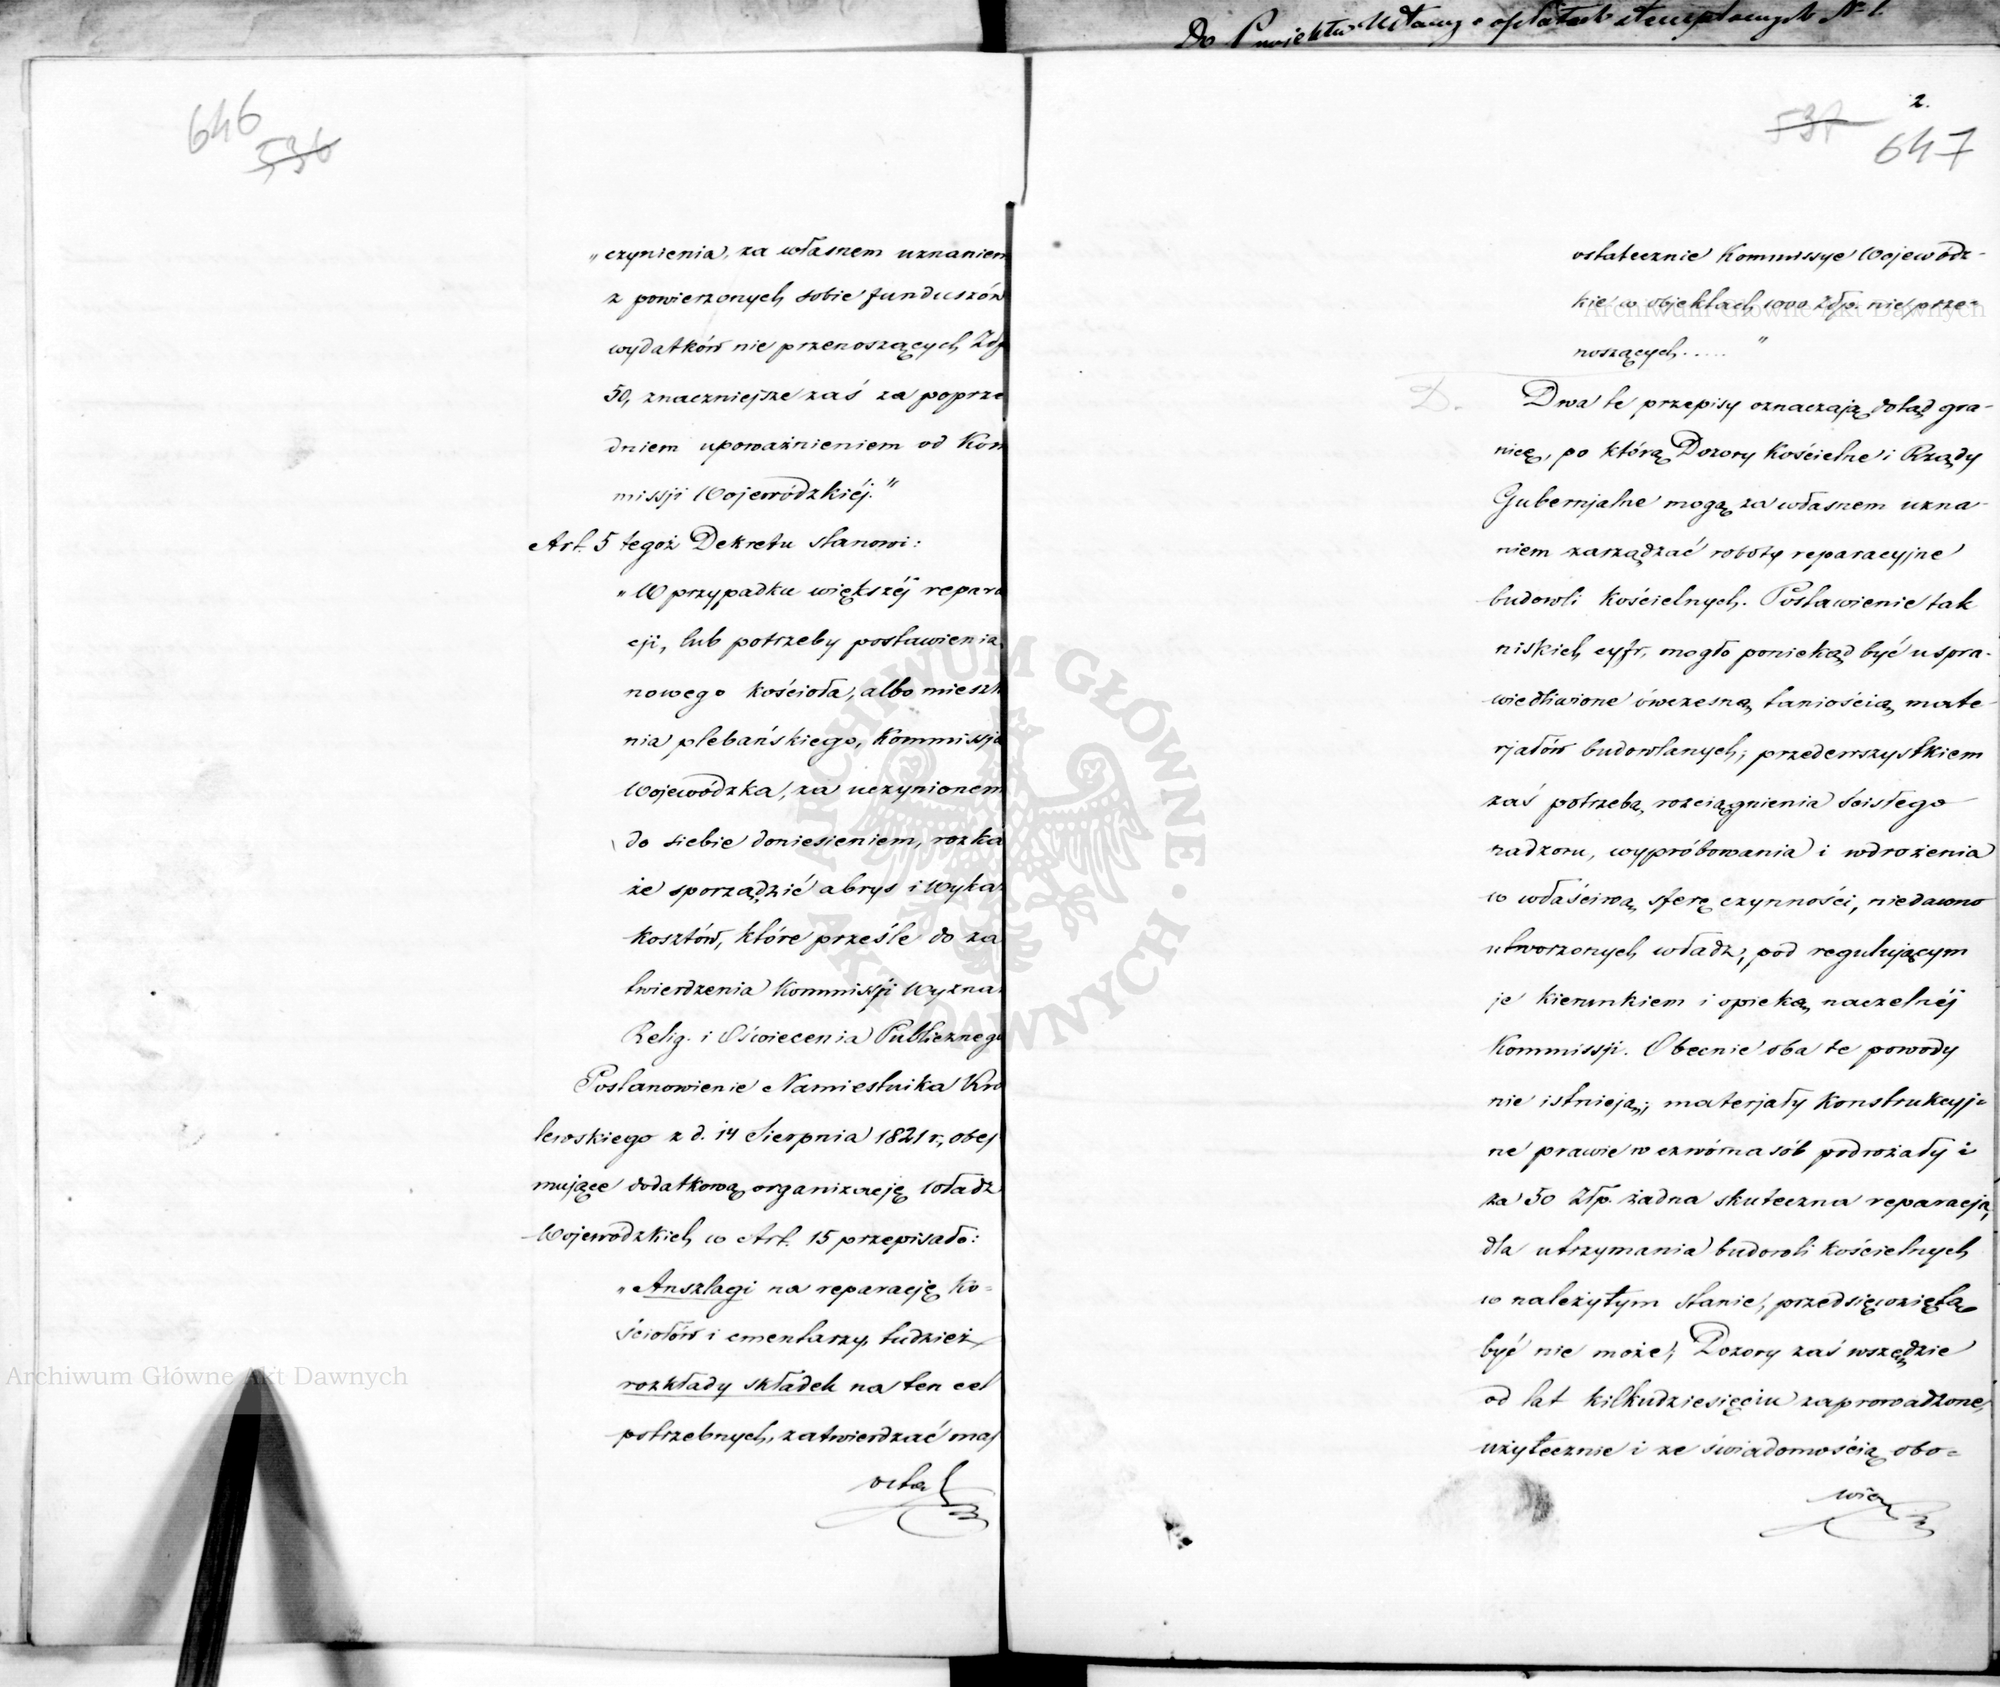 Do Projektu Ustawy o opłatach stemplowych Nº 1.
646
536
„czynienia, za własnem uznaniem
z powierzonych sobie funduszów
wydatków nie przenoszących Złp
50, znaczniejsze zaś za poprze
dniem upoważnieniem od Kom
missji Wojewódzkiéj."
Art. 5 tegoż Dekretu stanowi:
„W przypadku większéj repara
cji, lub potrzeby postawienia
nowego kościoła, albo mieszk
nia plebańskiego, Kommissja
Wojewódzka, za uczynionem
do siebie doniesieniem, rozka
że sporządzić abrys i wyka
kosztów, które prześle do za
twierdzenia Kommissji Wyzna
Relig. i Oświecenia Publicznego
Postanowienie Namiestnika Kró
lewskiego z d. 14 Sierpnia 1821 r., obej
mujące dodatkową organizację władz
Wojewódzkich w Art. 15 przepisało:
„Anszlagi na reparację Ko-
ściołów i cmentarzy, tudzież
rozkłady składek na ten cel
potrzebnych, zatwierdzać maj
ostat
2.
537
647
ostatecznie Kommissye Wojewódz-
kie w objektach 1000 Złp. nie prze-
noszących ..... "
D. Dwa te przepisy oznaczają dotąd gra-
nicę, po którą Dozory Kościelne i Rządy
Gubernjalne mogą za własnem uzna-
niem zarządzać roboty reparacyjne
budowli Kościelnych. Postawienie tak
niskich cyfr, mogło poniekąd być uspra-
wiedliwione ówczesną taniością mate-
rjałów budowlanych; przedewszystkiem
zaś potrzebą rozciągnienia ścisłego
nadzoru, wypróbowania i wdrożenia
w właściwą sferę czynności, niedawno
utworzonych władz, pod regulującym
je kierunkiem i opieką naczelnéj
Kommissji. Obecnie oba te powody
nie istnieją; materjały konstrukcyj-
ne prawie w czwórnasób podrożały i
za 50 Złp. żadna skuteczna reparacja,
dla utrzymania budowli kościelnych
w należytym stanie, przedsięwziętą
być nie może; Dozory zaś wszędzie
od lat kilkudziesięciu zaprowadzone,
użytecznie i ze świadomością obo-
wią
Archiwum Główne Akt Dawnych
Archiwum Główne Akt Dawnych
ARCHIWUM GŁÓWNE · AKT DAWNYCH ·